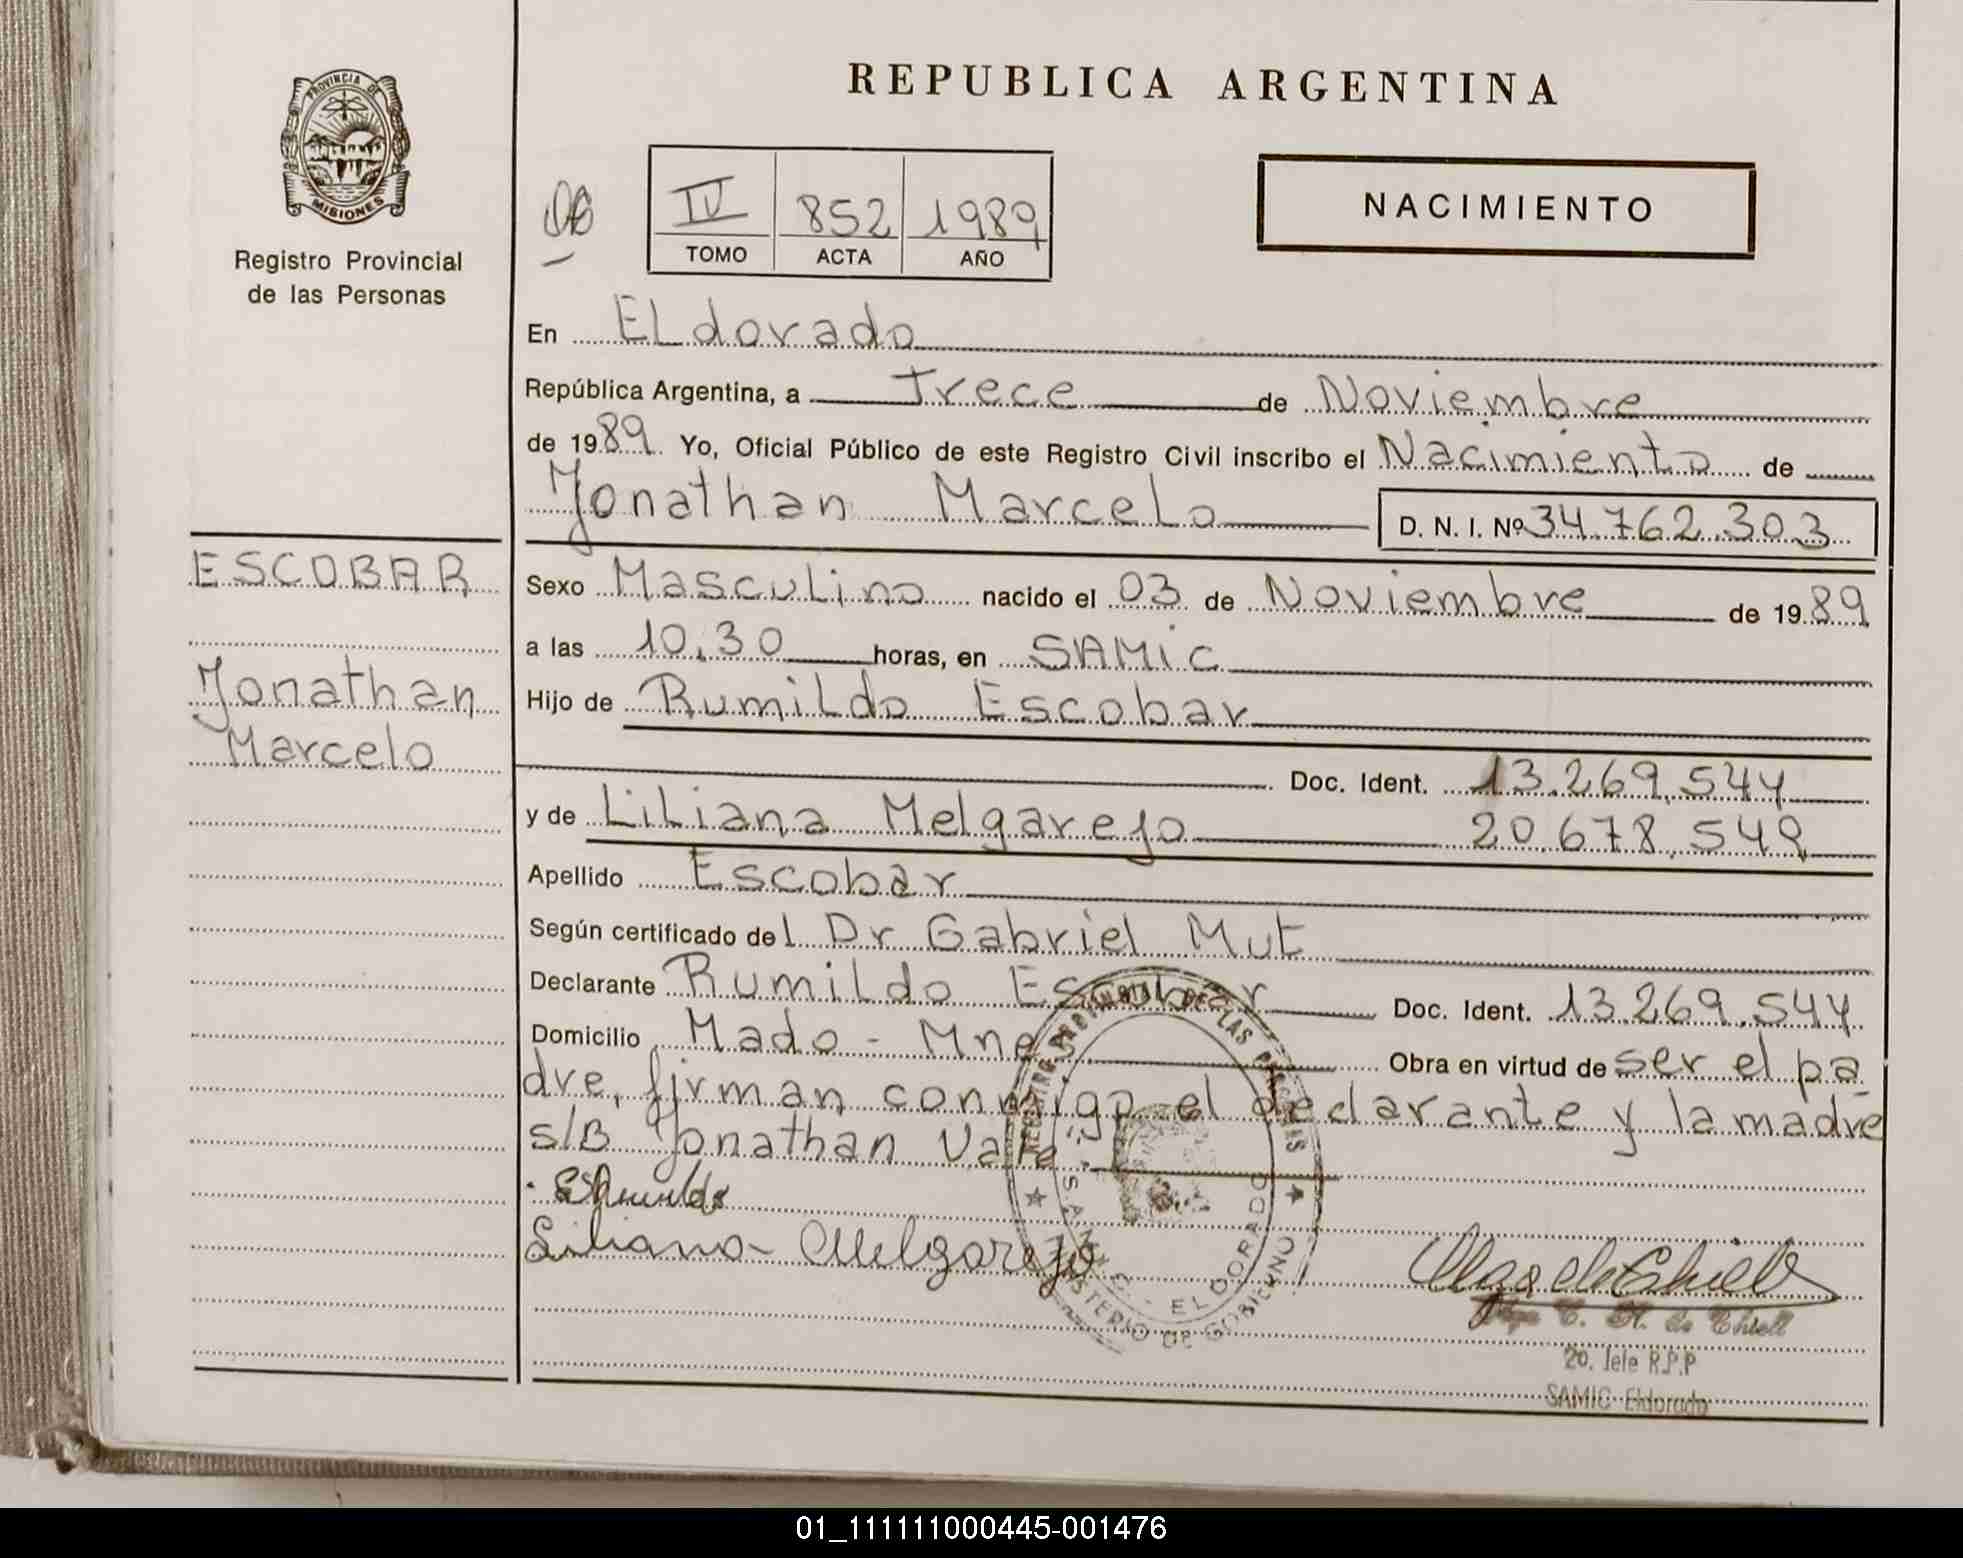 REPUBLICA ARGENTINA
PROVINCIA DE
MISIONES
Registro Provincial
de las Personas
IV 852 1989
TOMO ACTA AÑO
NACIMIENTO
En ELdorado
República Argentina, a Trece de Noviembre
de 1989 Yo, Oficial Público de este Registro Civil inscribo el Nacimiento de
Jonathan Marcelo D. N. I. Nº 34.762.303
ESCOBAR
Jonathan
Marcelo
Sexo Masculino nacido el 03 de Noviembre de 1989
a las 10,30 horas, en SAMIC
Hijo de Rumildo Escobar
Doc. Ident. 13.269.544
y de Liliana Melgarejo 20.678.549
Apellido Escobar
Según certificado del Dr Gabriel Mut
Declarante Rumildo Escobar Doc. Ident. 13.269.544
Domicilio Mado - Mnes Obra en virtud de ser el pa
dre, firman conmigo el declarante y la madre
s/B Jonathan Vale
Liliana Melgarejo
REGISTRO PROVINCIAL DE LAS PERSONAS
MINISTERIO DE GOBIERNO
S.A.M.I.C. - ELDORADO
2o. Jefe R.P.P
SAMIC Eldorado
01_111111000445-001476